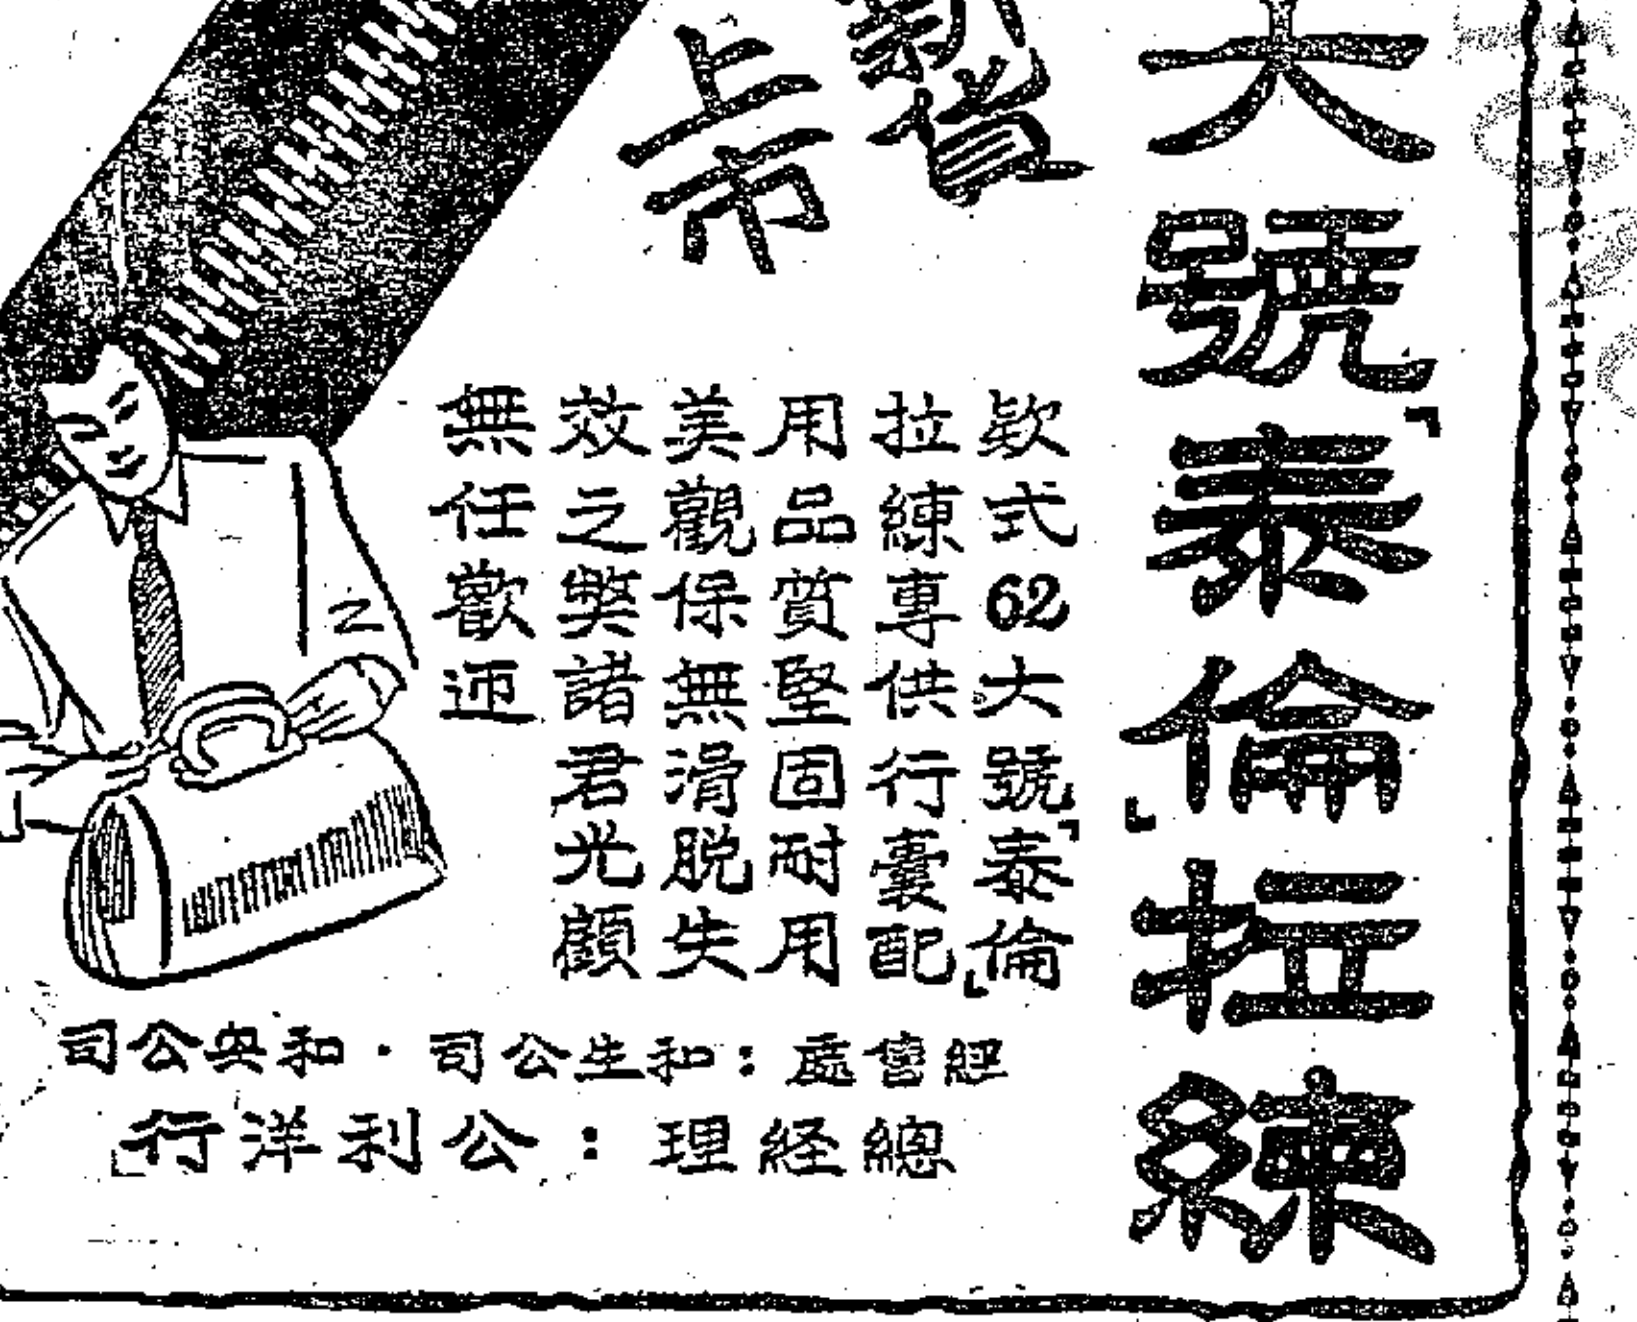 大號「泰倫」拉練
上市
欵式62大號「泰倫」
拉練專供行囊配
用品質堅固耐用
美觀保無滑脫失
效之弊諸君光顧
無任歡迎
經售處：和生公司·和央公司
總経理：公利洋行